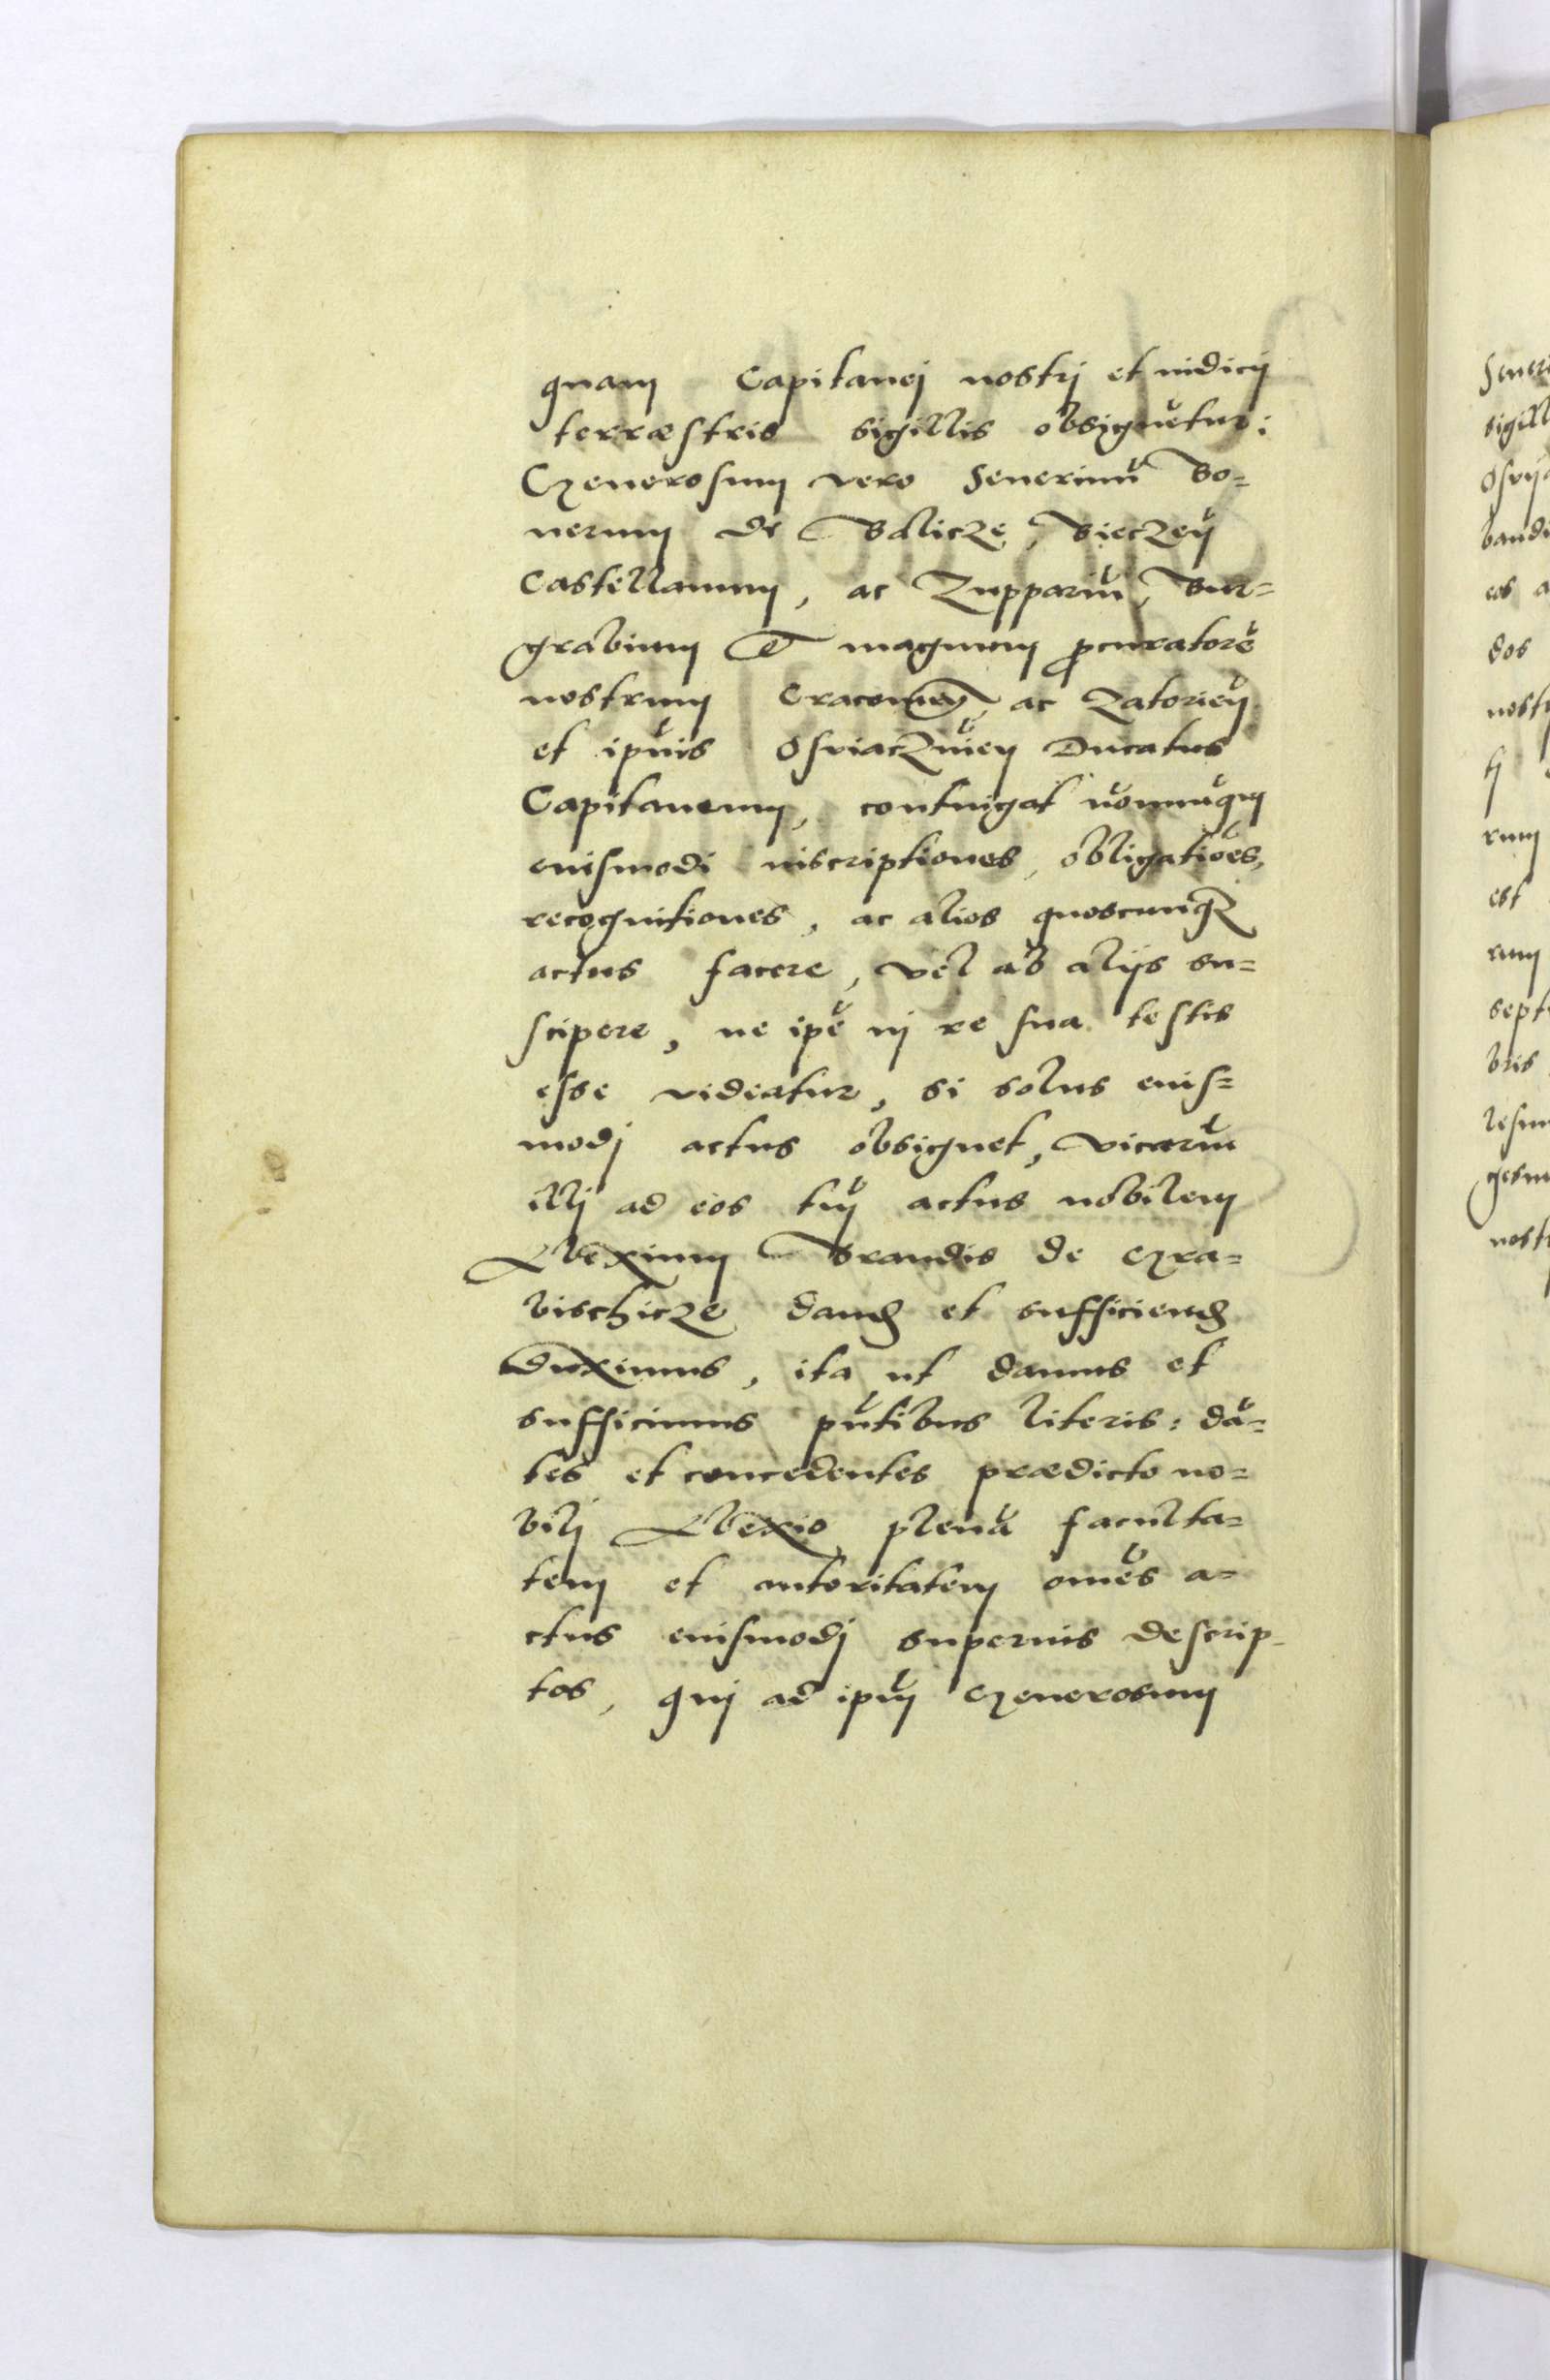 quam Capitanej nostrj et iudicij
terræstris sigillis obsignētur:
Generosum vero Seuerinū Bo=
nerum de Balicze, Bieczeñ
Castellanum, ac Zuppariū, Bur=
grabium et magnum ꝓcuratorē
nostrum Cracovieñ, ac Zatorieñ
et ipīus Osviaczimeñ Ducatus
Capitaneum, contingat nōnunq̄m
eiusmodi inscriptiones, obligatiōes,
recognitiones, ac alios quoscunqꝫ
actus facere, vel ab alijs su=
scipere, ne ipē in re sua testis
esse videatur, si solus eius=
modj actus obsignet, vicariū
illj ad eos tm̄ actus nobilem
Albexium Brandis de Gra=
bischicze dand et sufficiend
duximus, ita ut damus et
sufficimus pñtibus literis: dā=
tes et concedentes prædicto no=
bilj Albexio plenā faculta=
tem et autoritatem omēs a=
ctus eiusmodj superius descrip=
tos, qui ad ipm̄ Generosum
Seueri
sigill
Osvia
band
eos a
dos
nost
tj
rum
est
rum
sept
bris
lesim
gesim
nost